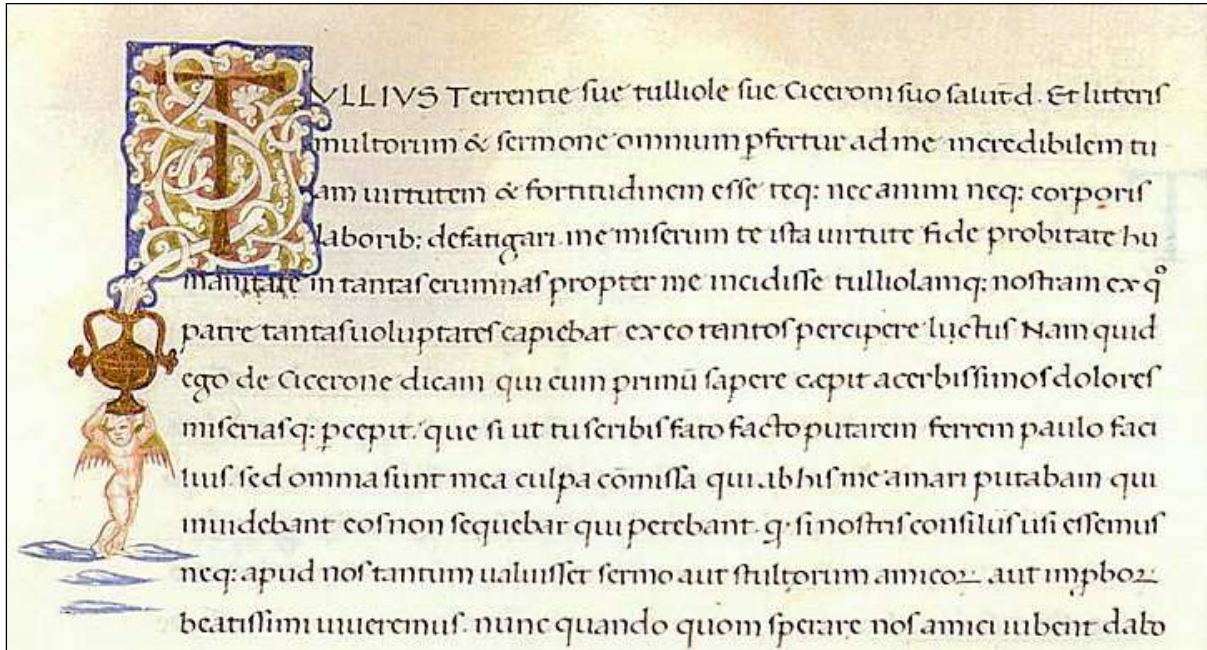 TVLLIVS Terrentie sue tulliole sue Ciceroni suo salut d. Et litteris
multorum & sermone omnium pfertur ad me incredibilem tu
am uirtutem & fortitudinem esse teq: nec animi neq: corporis
laborib: defatigari. me miserum te ista uirtute fide probitate hu
manitate in tantas erumnas propter me incidisse tulliolamq: nostram ex qº
patre tantas uoluptates capiebat ex eo tantos percipere luctus Nam quid
ego de Cicerone dicam qui cum primū sapere cepit acerbissimos dolores
miseriasq: pcepit. que si ut tu scribis fato facto putarem ferrem paulo faci
lius. sed omnia sunt mea culpa cōmissa qui ab his me amari putabam qui
inuidebant eos non sequebar qui petebant. q. si nostris consiliis usi essemus
neq: apud nos tantum ualuisset sermo aut stultorum amicoꝝ aut impboꝝ
beatissimi uiueremus. nunc quando quom sperare nos amici iubent dabo